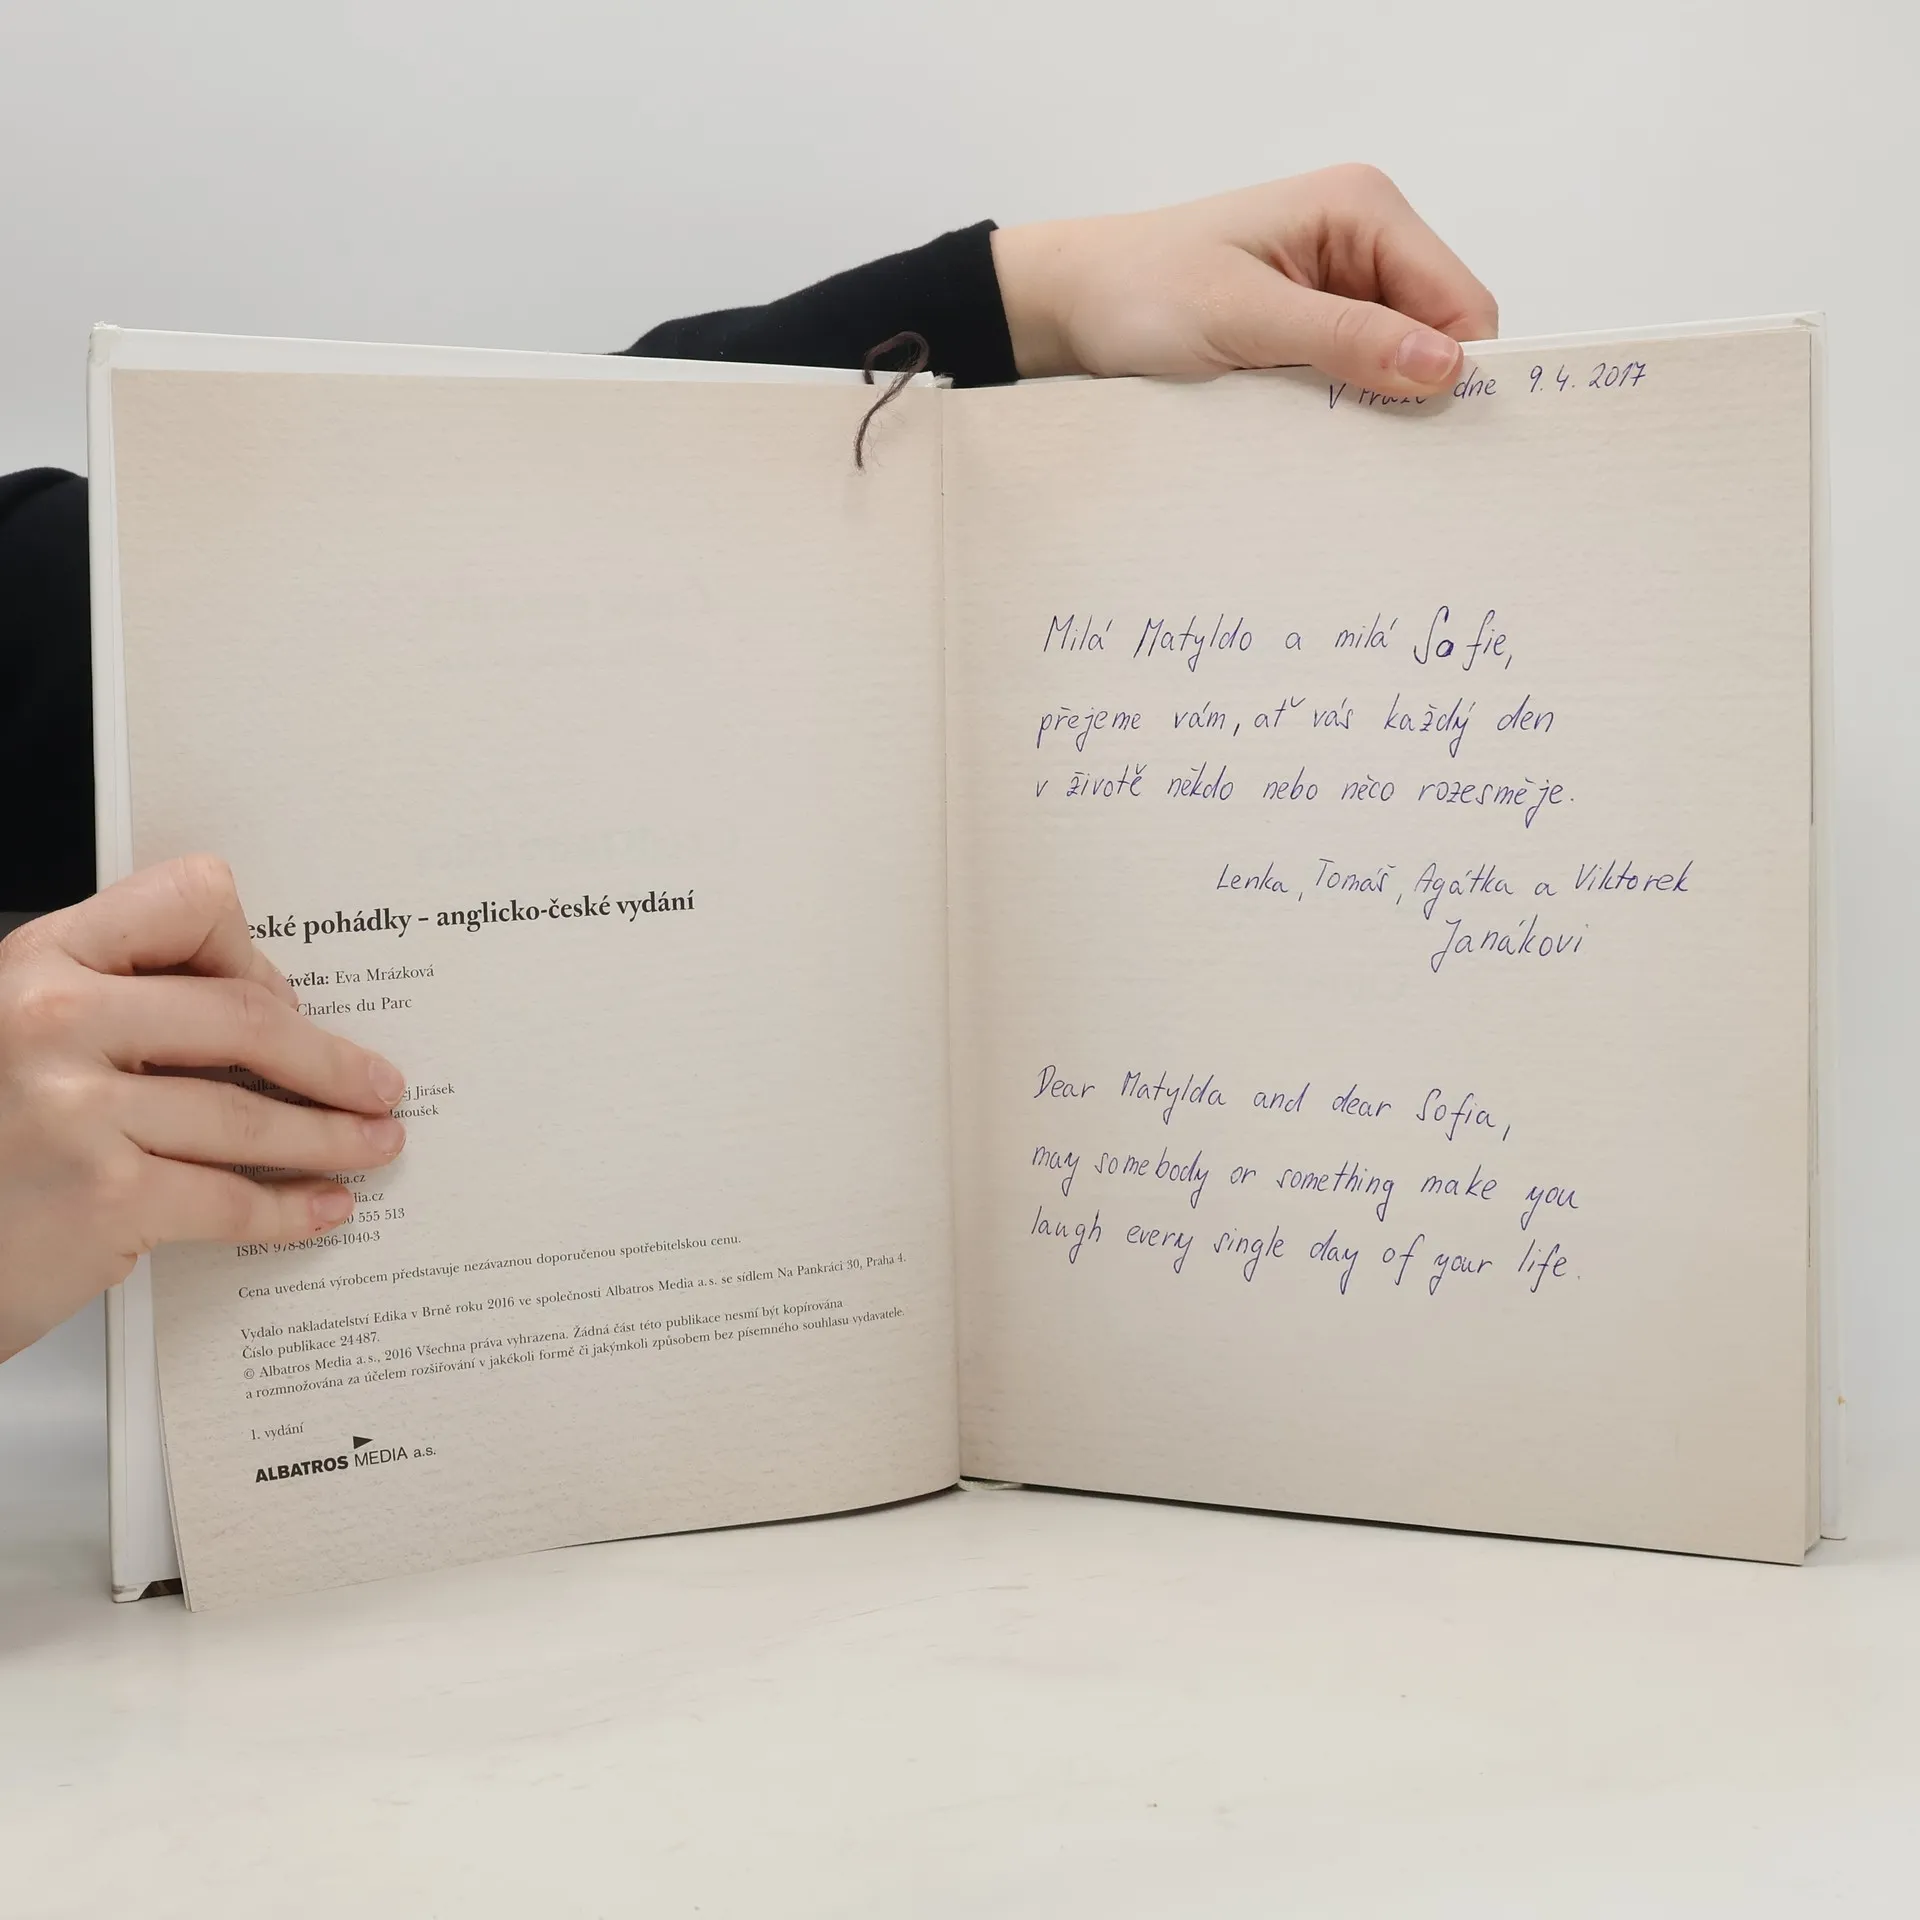 eské pohádky – anglicko-české vydání
ávěla: Eva Mrázková
Charles du Parc
ej Jirásek
latoušek
dia.cz
dia.cz
555 513
ISBN 978-80-266-1040-3
Cena uvedená výrobcem představuje nezávaznou doporučenou spotřebitelskou cenu.
Vydalo nakladatelství Edika v Brně roku 2016 ve společnosti Albatros Media a. s. se sídlem Na Pankráci 30, Praha 4.
Číslo publikace 24 487.
© Albatros Media a. s., 2016 Všechna práva vyhrazena. Žádná část této publikace nesmí být kopírována
a rozmnožována za účelem rozšiřování v jakékoli formě či jakýmkoli způsobem bez písemného souhlasu vydavatele.
1. vydání
ALBATROS MEDIA a.s.
V dne 9. 4. 2017
Milá Matyldo a milá Sofie,
přejeme vám, ať vás každý den
v životě někdo nebo něco rozesměje.
Lenka, Tomáš, Agátka a Viktorek
Janákovi
Dear Matylda and dear Sofia,
may somebody or something make you
laugh every single day of your life.